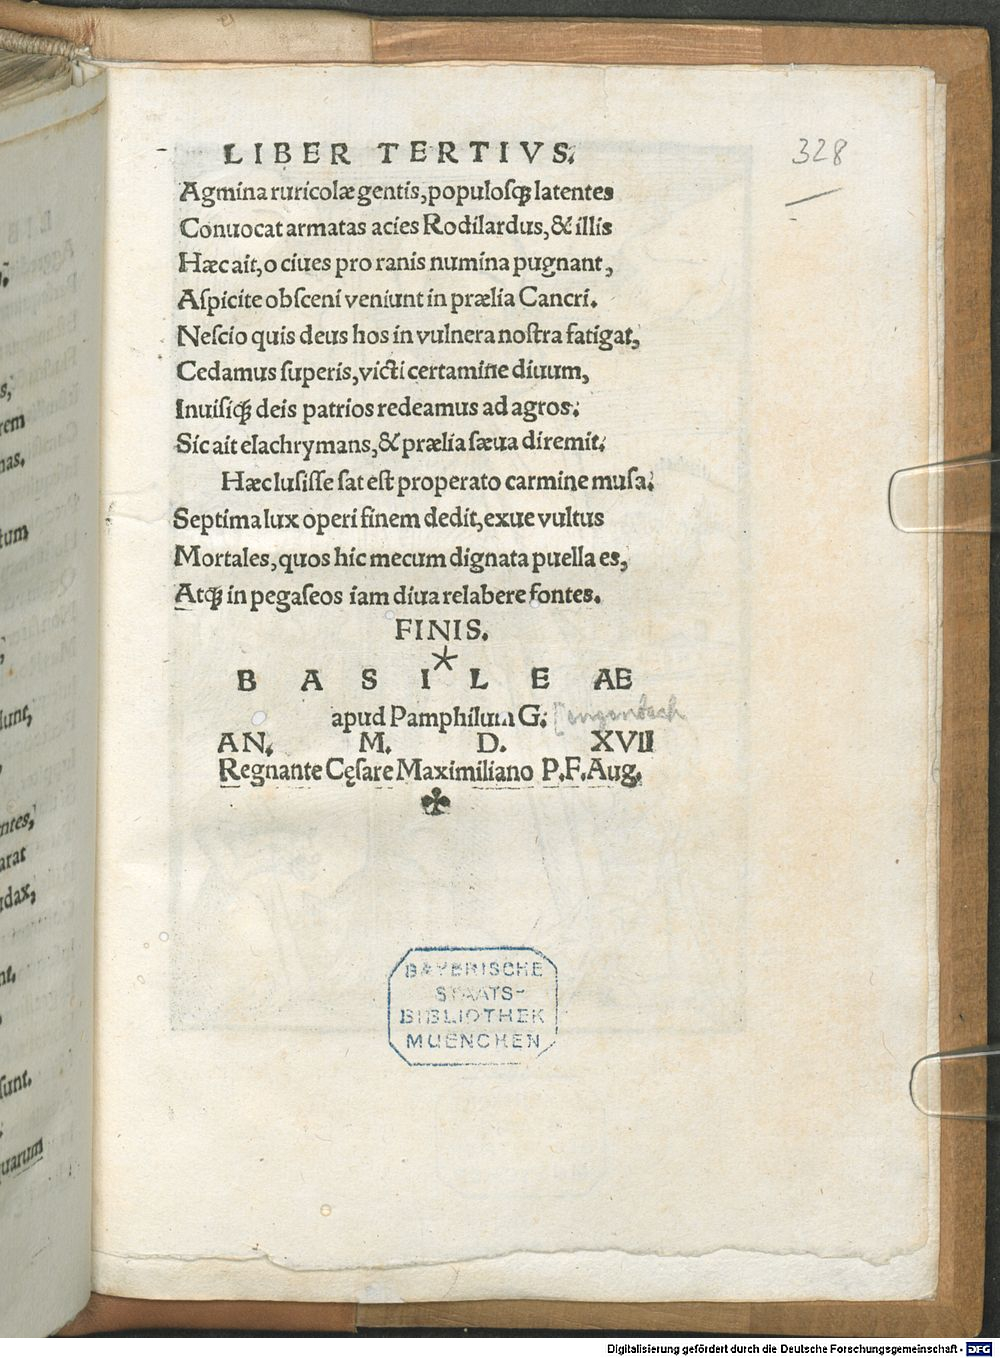 LIBER TERTIVS.
328
Agmina ruricolæ gentis, populosq; latentes
Conuocat armatas acies Rodilardus, & illis
Hæc ait, o ciues pro ranis numina pugnant,
Aſpicite obſceni veniunt in prælia Cancri.
Neſcio quis deus hos in vulnera noſtra fatigat,
Cedamus ſuperis, victi certamine diuum,
Inuiſiq; deis patrios redeamus ad agros.
Sic ait elachrymans, & prælia ſæua diremit.
Hæc luſiſſe ſat eſt properato carmine muſa.
Septima lux operi finem dedit, exue vultus
Mortales, quos hic mecum dignata puella es,
Atq; in pegaſeos iam diua relabere fontes.
FINIS.
B A S I L E AE
apud Pamphilum G. [engenbach
AN. M. D. XVII
Regnante Cęſare Maximiliano P.F. Aug.
BAYERISCHE
STAATS-
BIBLIOTHEK
MUENCHEN
rem
nas.
tum
lunt,
entes,
arat
udax,
nt.
ſunt.
quarum
Digitalisierung gefördert durch die Deutsche Forschungsgemeinschaft - DFG